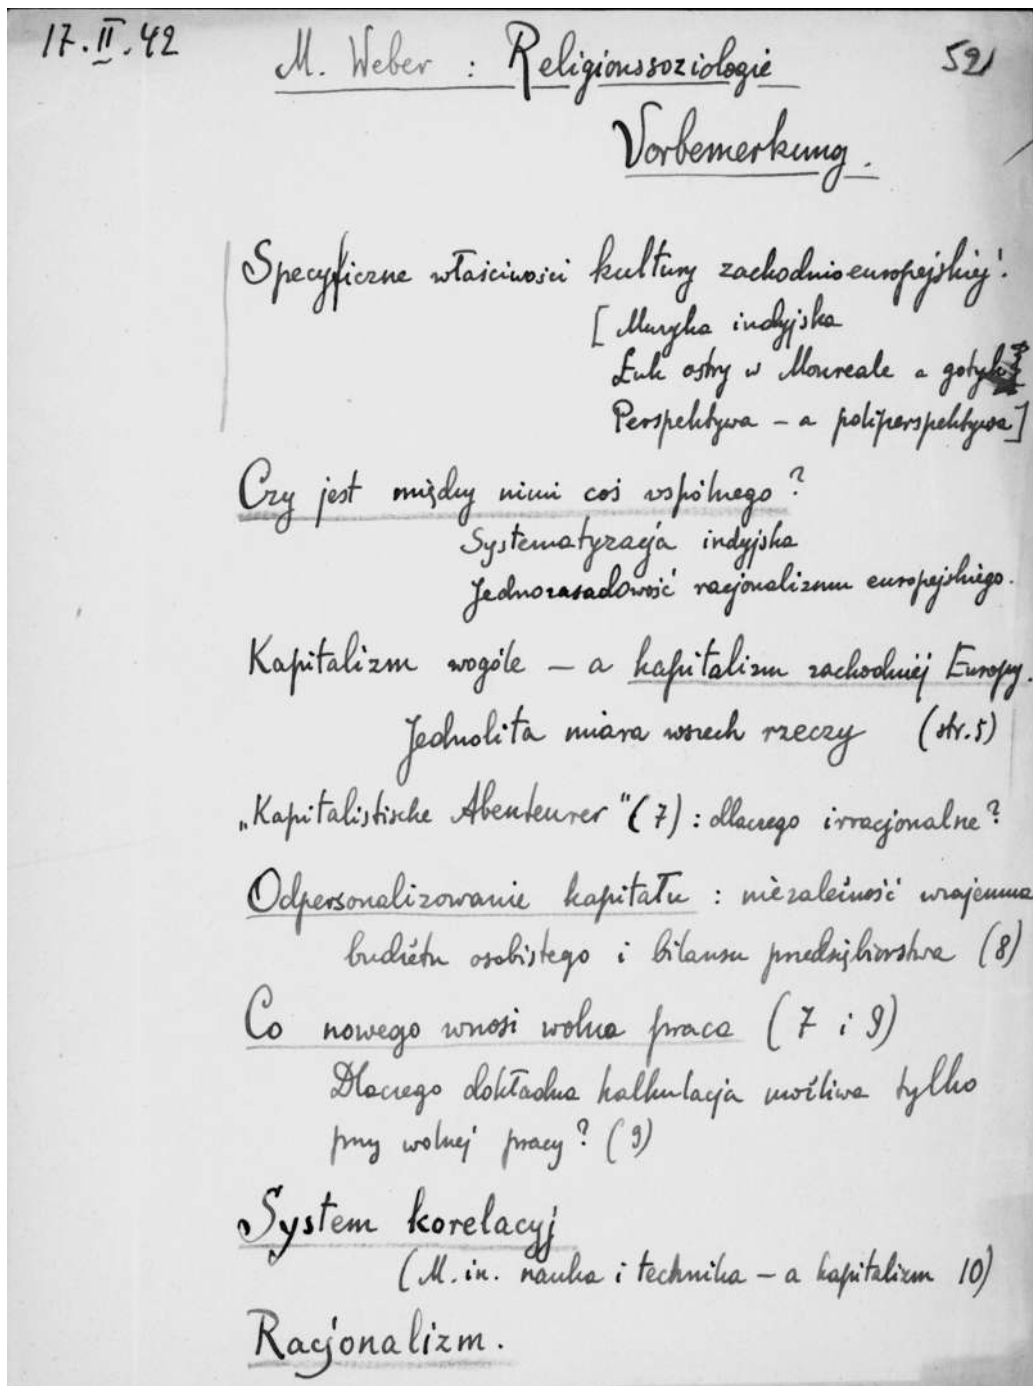 17.II.42
M. Weber : Religionssoziologie
52
Vorbemerkung.
Specyficzne właściwości kultury zachodnioeuropejskiej:
[Muzyka indyjska
Łuk ostry w Monreale a gotyk
Perspektywa – a poliperspektywa]
Czy jest między nimi coś wspólnego?
Systematyzacja indyjska
Jednozasadowość racjonalizmu europejskiego.
Kapitalizm wogóle – a kapitalizm zachodniej Europy.
Jednolita miara wszech rzeczy (str. 5)
„Kapitalistische Abenteurer" (7) : dlaczego irracjonalne?
Odpersonalizowanie kapitału : niezależność wzajemna
budżetu osobistego i bilansu przedsiębiorstwa (8)
Co nowego wnosi wolna praca (7 i 9)
Dlaczego dokładna kalkulacja możliwa tylko
przy wolnej pracy? (9)
System korelacyj
(M. in. nauka i technika – a kapitalizm 10)
Racjonalizm.